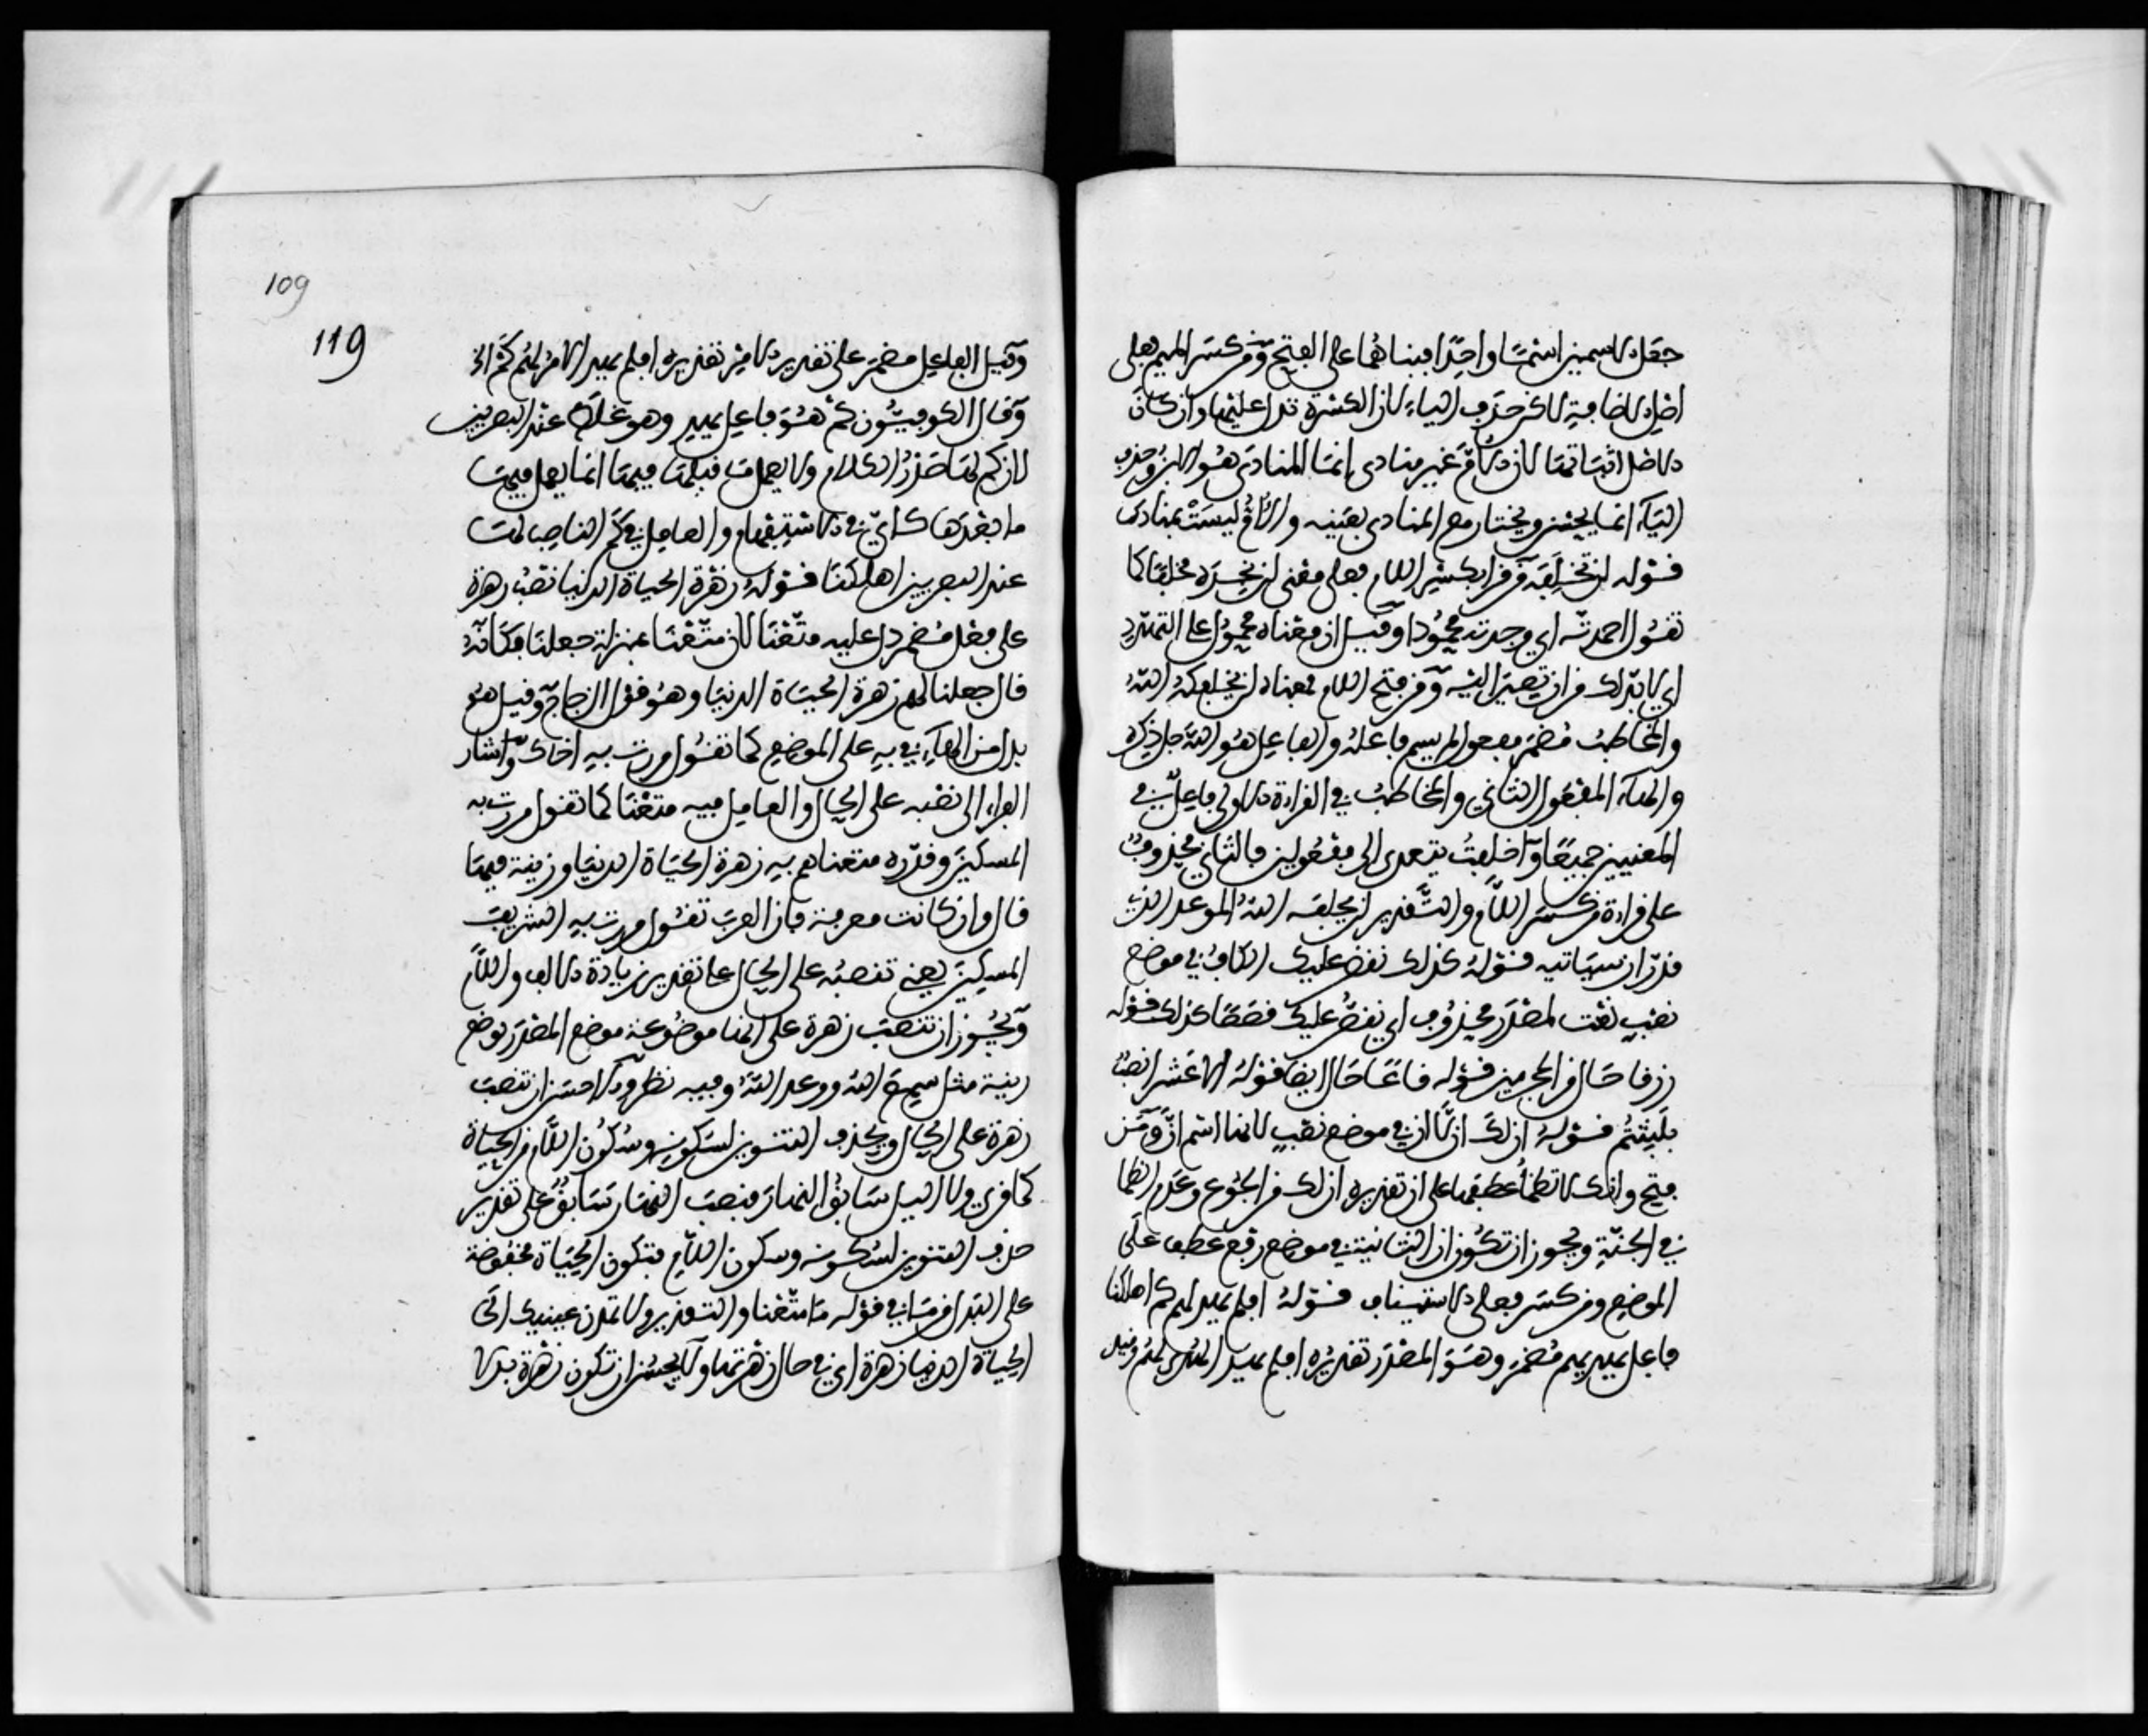 جعل الاسمين اسما واحدا فبناهما على الفتح ومن كسر الميم فعلى
اصل الاضافة لاكن حذف الياء لان الكسرة تدل عليها وان كان
الاصل اثباتها لان الام غير منادى انما المنادى هو الابن وحذف
الياء انما يحسن ويختار مع المنادى بعينه والام ليست بمنادى
قوله لن تخلفه من قرا بكسر اللام فعلى معنى لن تجده مخلفا كما
تقول احمدته اي وجدته محمودا وقيل ان معناه محمول على التهدد
اي لا بد لك من ان تصير اليه ومن فتح اللام فمعناه لن يخلفكه الله
والمخاطب مضمر مفعول لم يسم فاعله والفاعل هو الله جل ذكره
والهاء المفعول الثاني والمخاطب في القراءة الاولى فاعل في
المعنيين جميعا واخلفت يتعدى الى مفعولين فالثاني محذوف
على قراءة من كسر اللام والتقدير لن يخلفه الله الموعد الذي
قدر ان سياتيه قوله كذلك نقص عليك الكاف في موضع
نصب نعت لمصدر محذوف اي نقص عليك قصصا كذلك قوله
زرقا حال من المجرمين قوله قاعا حال ايضا قوله الا عشرا نصب
بلبثتم قوله ان لك ان لا ان في موضع نصب لانها اسم ان ومن
فتح وانك لا تظمأ عطفها على ان تقديره ان لك من الجوع وعدم الظما
في الجنة ويجوز ان تكون ان الثانية في موضع رفع عطف على
الموضع ومن كسر فعلى الاستيناف قوله افلم يهد لهم كم اهلكنا
فاعل يهد يهم مضمر وهو المصدر تقديره افلم يهد الهدى لهم وقيل
109
119
وقيل الفاعل مضمر على تقدير الامر تقديره افلم يهد الامر لهم كم اهـ
وقال الكوفيون كم هو فاعل يهد وهو غلط عند البصريين
لان كم لها صدر الكلام ولا يعمل ما قبلها فيها انما يعمل فيها
ما بعدها كاي في الاستفهام والعامل في كم الناصب لها
عند البصريين اهلكنا قوله زهرة الحياة الدنيا نصب زهرة
على فعل مضمر دل عليه متعنا لان متعنا بمنزلة جعلنا فكانه
قال جعلنا لهم زهرة الحياة الدنيا وهو قول الزجاج وقيل هو
بدل من الهاء في به على الموضع كما تقول مررت به اخاك واشار
الفراء الى نصبه على الحال والعامل فيه متعنا كما تقول مررت به
المسكين وقدره متعناهم به زهرة الحياة الدنيا وزينة فيها
قال وان كانت معرفة فان العرب تقول مررت به الشريف
المسكين يعني تنصبه على الحال على تقدير زيادة الالف واللام
ويجوز ان تنصب زهرة على انها موضوعة موضع المصدر موضع
زينة مثل صنع الله ووعد الله وفيه نظر والاحسن ان تنصب
زهرة على الحال ويحذف التنوين لسكونه وسكون اللام من الحياة
كما قري ولا الليل سابق النهار فنصب النهار بسابق على تقدير
حذف التنوين لسكونه وسكون اللام فتكون الحياة مخفوضة
على البدل من ما في قوله ما متعنا والتقدير ولا تمدن عينيك الى
الحياة الدنيا زهرة اي في حال زهرتها ولا يحسن ان تكون زهرة بدلا